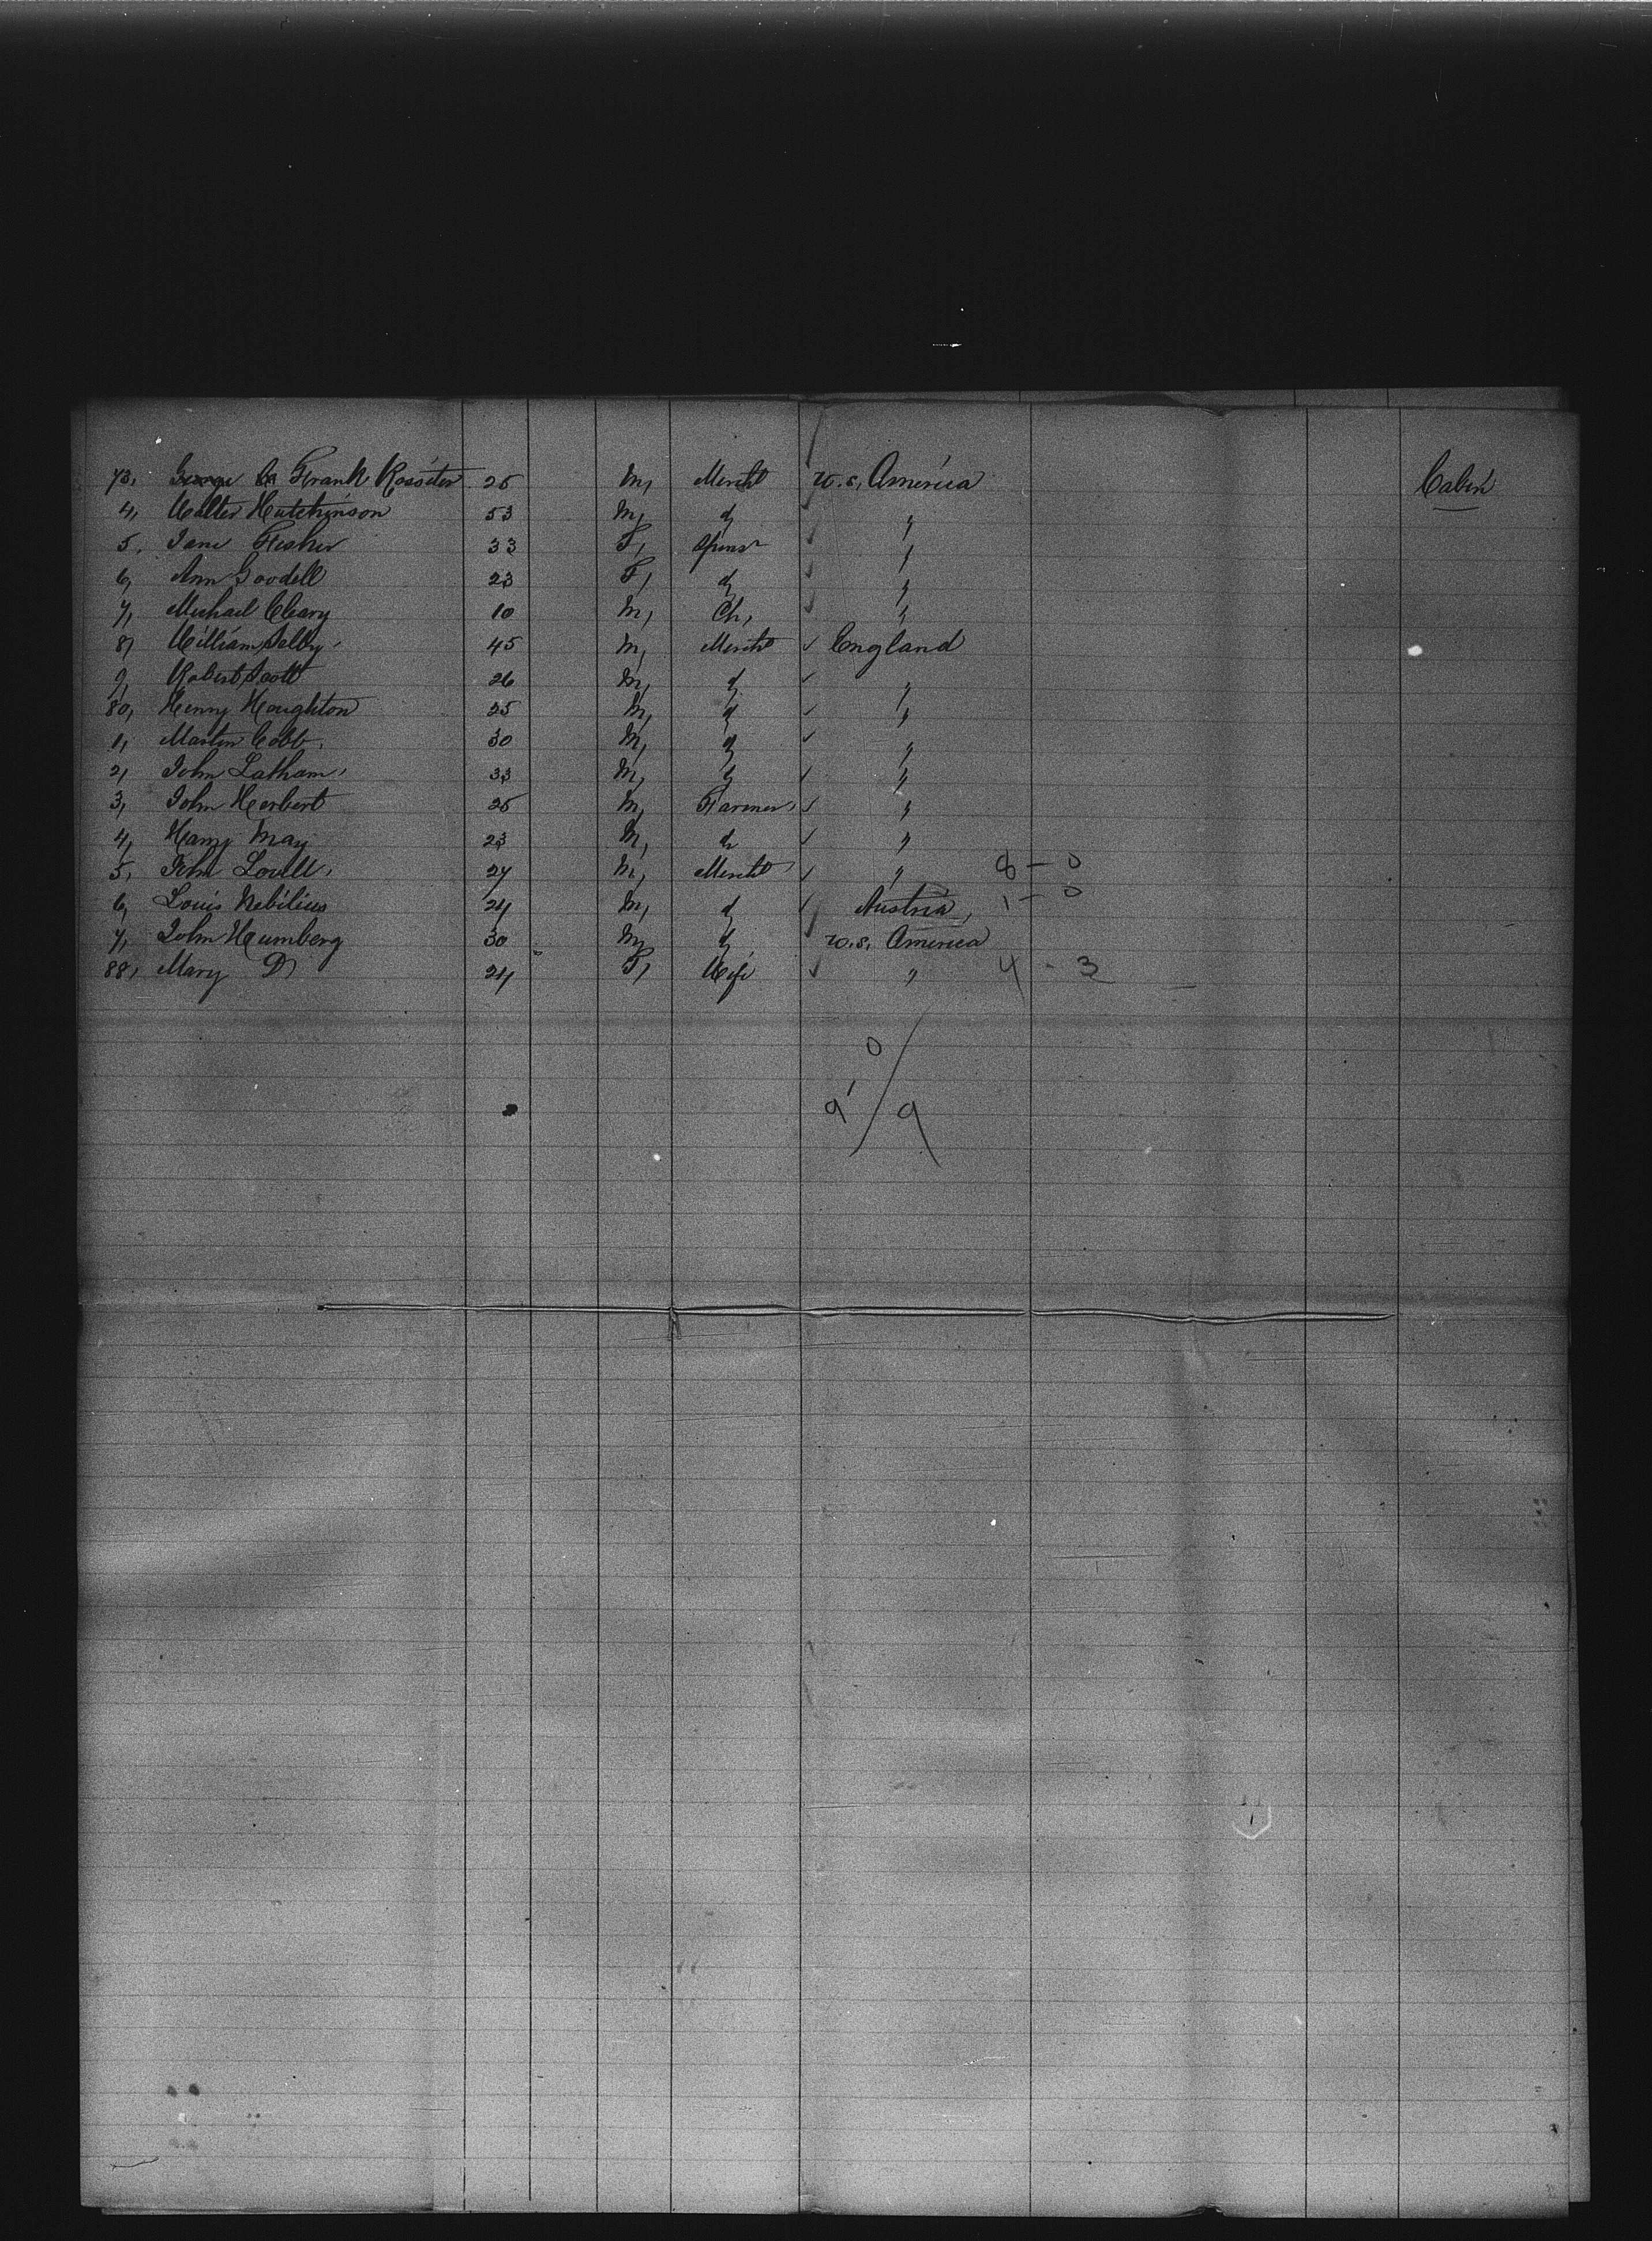 73, George Frank Rossiter 25 M, Mercht U.S. America Cabin
4, Walter Hutchinson 53 M, do "
5, Jane Fisher 33 F, Spinsr "
6, Ann Goodell 23 F, do "
7, Michael Cleary 10 M, Ch, "
8, William Selby 45 M, Mercht ✓ England
9, Robert Scott 26 M, do ✓ "
80, Henry Houghton 25 M, do ✓ "
1, Martin Cobb 30 M, do ✓ "
2, John Latham 33 M, do ✓ "
3, John Herbert 25 M, Farmer ✓ "
4, Harry May 23 M, do ✓ "
5, John Lovell 27 M, Mercht ✓ " 8 - 0
6, Louis Nebilius 24 M, do ✓ Austria, 1 - 0
7, John Humberg 30 M, do U.S. America
88, Mary Do 24 F, Wife ✓ " 4 - 3
0
9 / 9